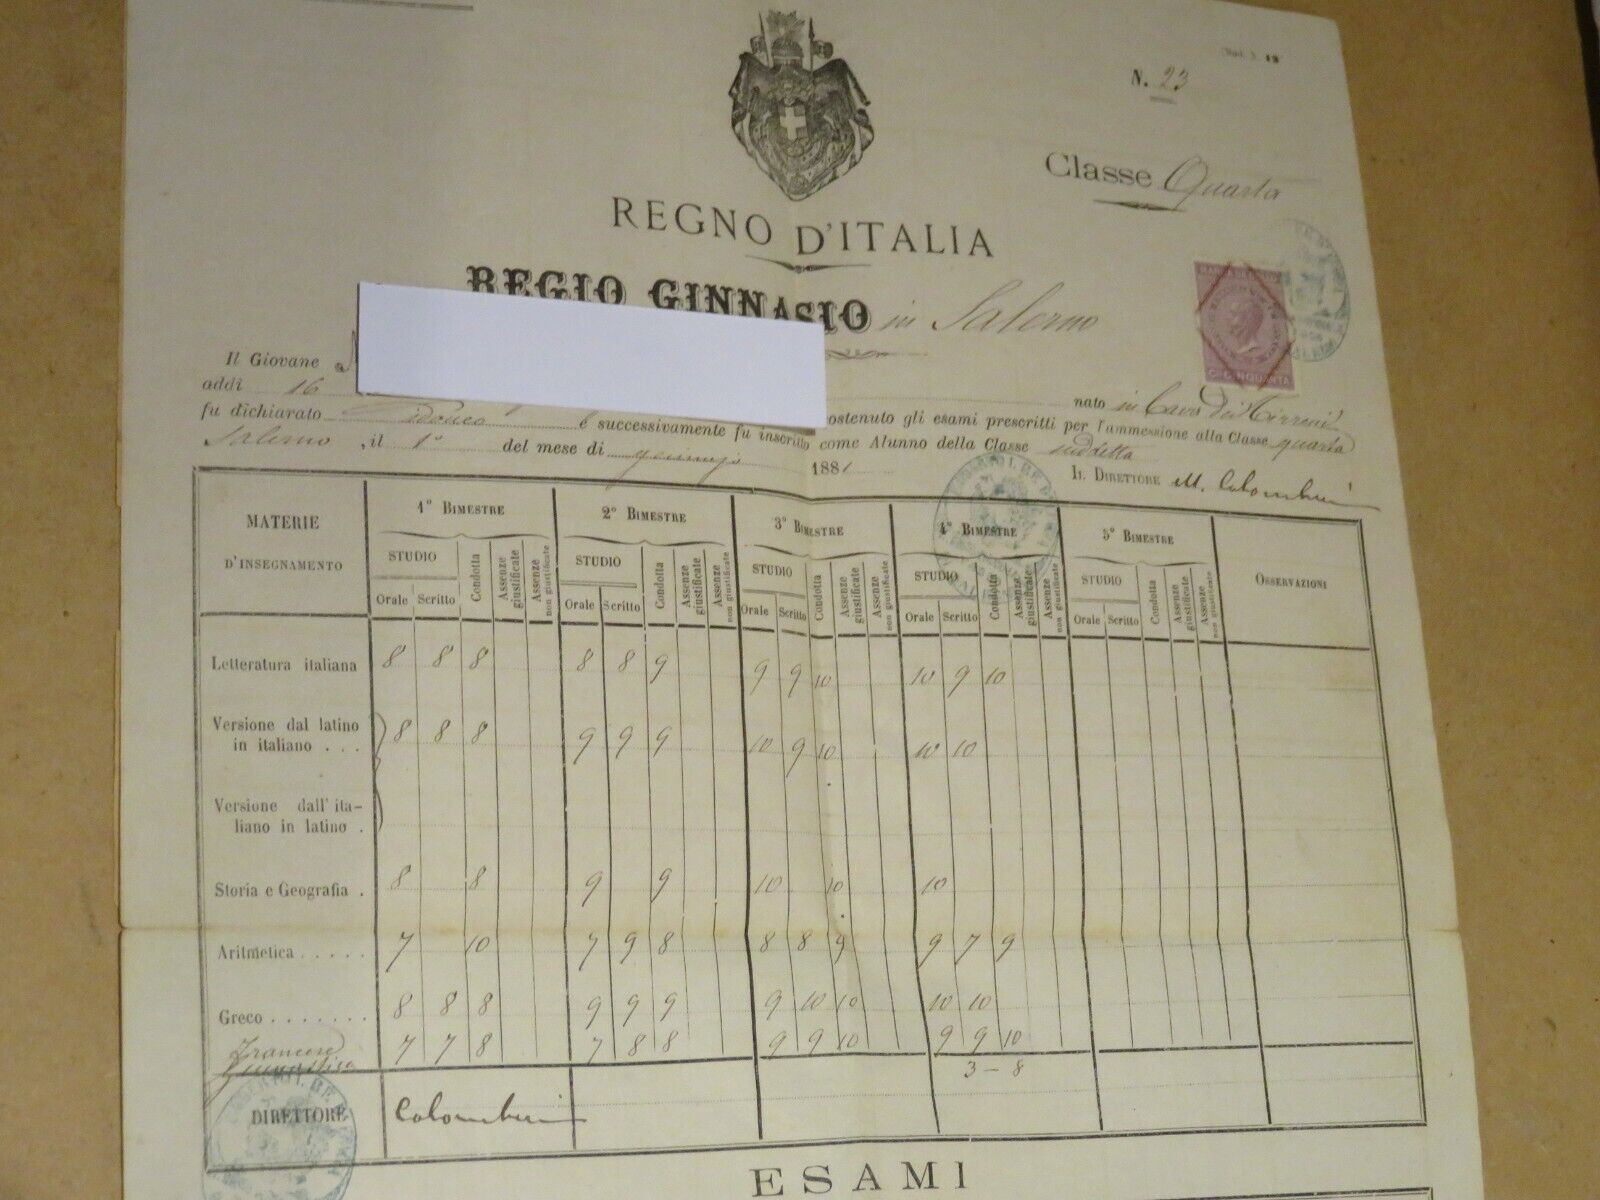 N. 23
Classe Quarta
REGNO D'ITALIA
REGIO GINNASIO in Salerno
CINQUANTA
Il Giovane
nato in Cava dei Tirreni
addì 16 sostenuto gli esami prescritti per l'ammessione alla Classe quarta
fu dichiarato Idoneo e successivamente fu inscritto come Alunno della Classe suddetta
Salerno, il 1° del mese di 1881 Il Direttore M.
MATERIE D'INSEGNAMENTO 1° Bimestre 2° Bimestre 3° Bimestre 4° Bimestre 5° Bimestre Osservazioni
STUDIO Condotta Assenze giustificate Assenze non giustificate STUDIO Condotta Assenze giustificate Assenze non giustificate STUDIO Condotta Assenze giustificate Assenze non giustificate STUDIO Condotta Assenze giustificate Assenze non giustificate STUDIO Condotta Assenze giustificate Assenze non giustificate
Orale Scritto Orale Scritto Orale Scritto Orale Scritto Orale Scritto
Letteratura italiana 8 8 8 8 8 9 9 9 10 10 9 10
Versione dal latino
in italiano . . . 8 8 8 9 9 9 10 9 10 10 10
Versione dall'ita-
liano in latino .
Storia e Geografia . 8 8 9 9 10 10 10
Aritmetica . . . . . 7 10 7 9 8 8 8 9 9 7 9
Greco . . . . . . . 8 8 8 9 9 9 9 10 10 10 10
Francese 7 7 8 7 8 8 9 9 10 9 9 10
Ginnastica 3 - 8
DIRETTORE
ESAMI